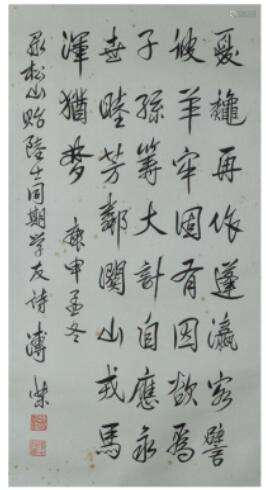 夏龝再作蓬瀛客譬
彼羊牢固有因欲為
子孫籌大計自應永
世睦芳鄰關山戎馬
渾猶夢 庚申孟冬
录松山贻陸士同期学友詩 溥傑